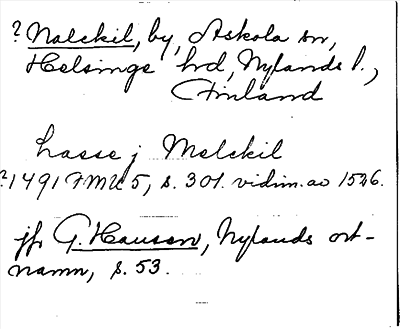 ? Nalckil, by, Askola sn,
Helsinge hd, Nylands l.,
Finland
Lasse j Melckil
? 1491 FMU 5, s. 301. vidim. av 1546.
jfr G. Hausen, Nylands ort-
namn, s. 53.